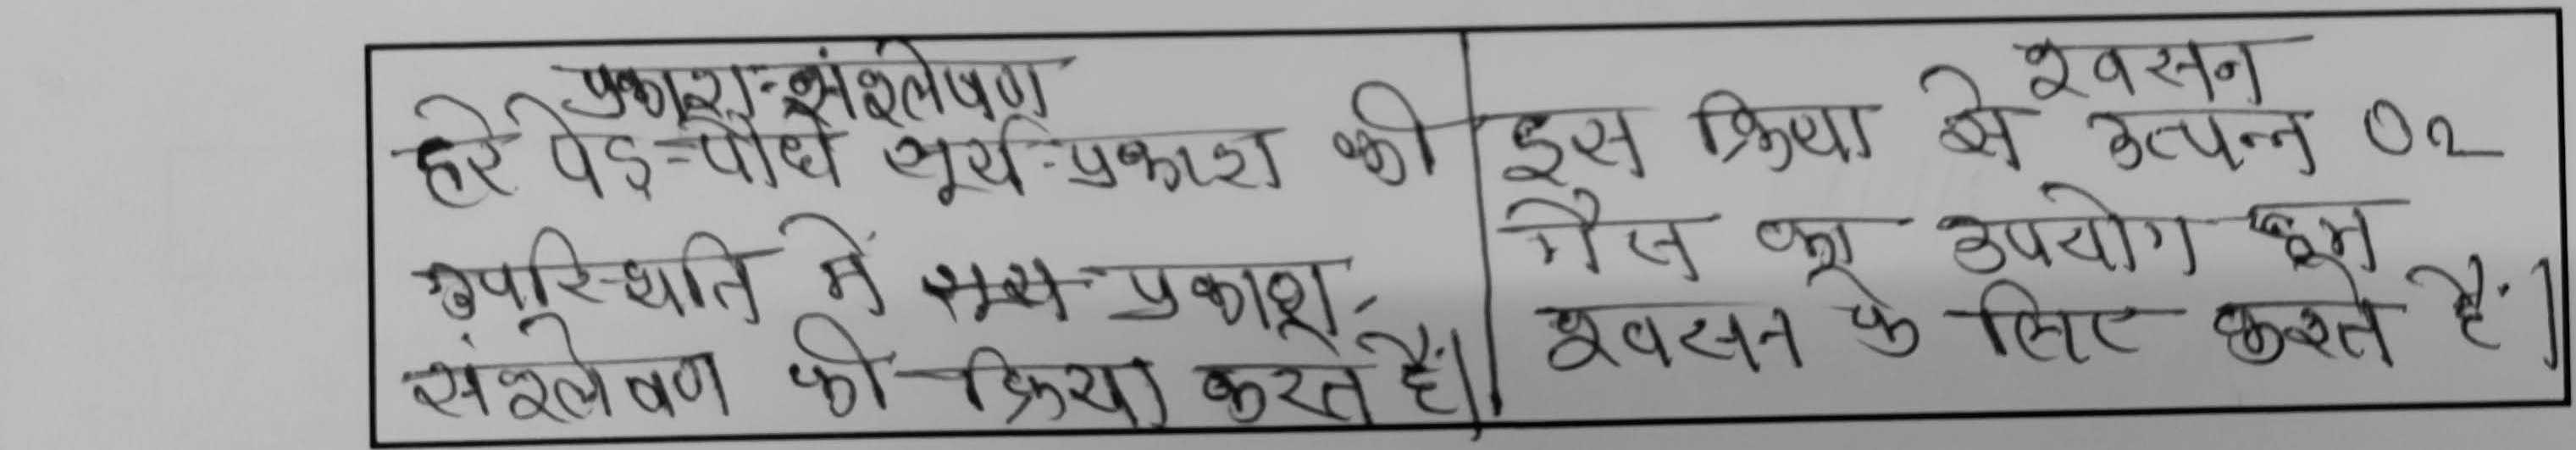 प्रकाश-संश्लेषण
हरे पेड़-पौधे सूर्य-प्रकाश की
उपस्थिति में प्रकाश-
संश्लेषण की क्रिया करते हैं।
श्वसन
इस क्रिया से उत्पन्न O2
गैस का उपयोग हम
श्वसन के लिए करते हैं।